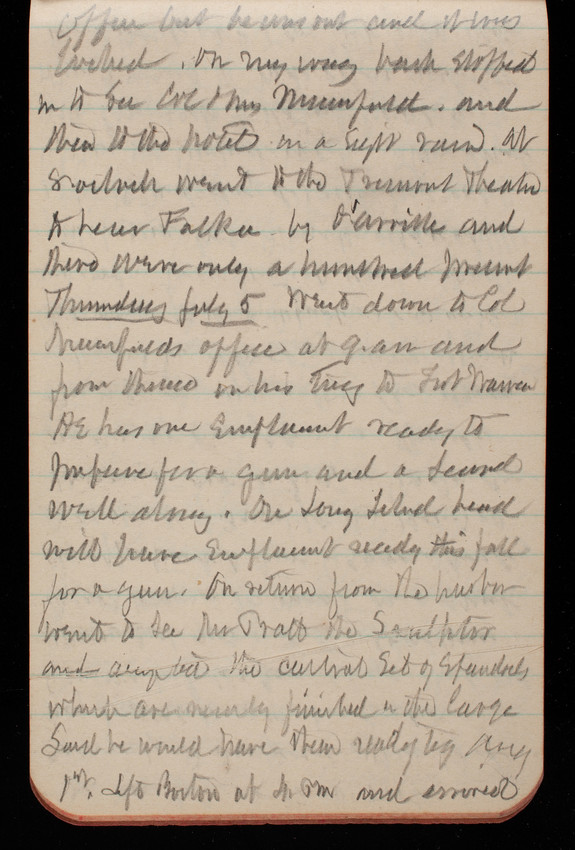 office but he was out and it was
locked. On my way back stopped
in to see Col & Mrs Mansfield. and
then to the hotel in a light rain. At
8 oclock went to the Tremont Theatre
to hear Falka by D'arville and
there were only a hundred present
Thursday July 5 Went down to Col
Mansfields office at 9 am and
from thence on his Tug to Fort Warren
He has one Emplment ready to
prepare for a gun and a second
well along. On Long Island head
will have Emplment ready this fall
for a gun. On return from the harbor
went to see Mr Pratt the Sculptor
and accepted the central Set of Spandrels
which are nearly finished in the large
Said he would have them ready by Aug
1st. Left Boston at 4 Pm and arrived